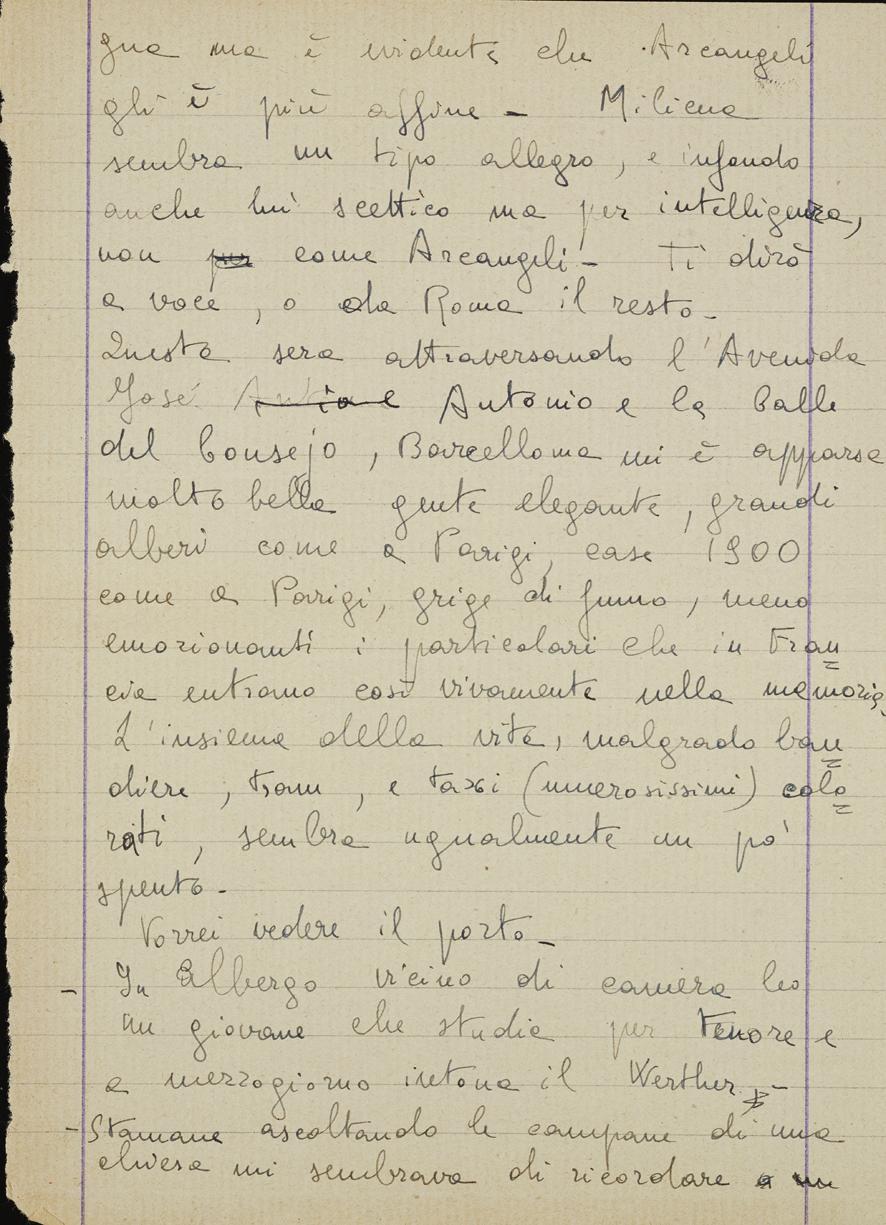 gna ma è evidente che Arcangeli
gli è più affine - Milicua
sembra un tipo allegro, e in fondo
anche lui scettico ma per intelligenza,
non per come Arcangeli - Ti dirò
a voce, o da Roma il resto -
Questa sera attraversando l'Avenida
José Antio e Antonio e la Calle
del Consejo, Barcellona mi è apparsa
molto bella gente elegante, grandi
alberi come a Parigi, case 1900
come a Parigi, grige di fumo, meno
emozionanti i particolari che in Fran
cia entrano così vivamente nella memoria.
L'insieme della vita, malgrado ban
diere, tram, e taxi (numerosissimi) colo
rati, sembra ugualmente un po'
spento -
Vorrei vedere il porto -
- In Albergo vicino di camera ho
un giovane che studia per tenore e
a mezzogiorno intona il Werther -
- Stamane ascoltando le campane di una
chiesa mi sembrava di ricordare a un